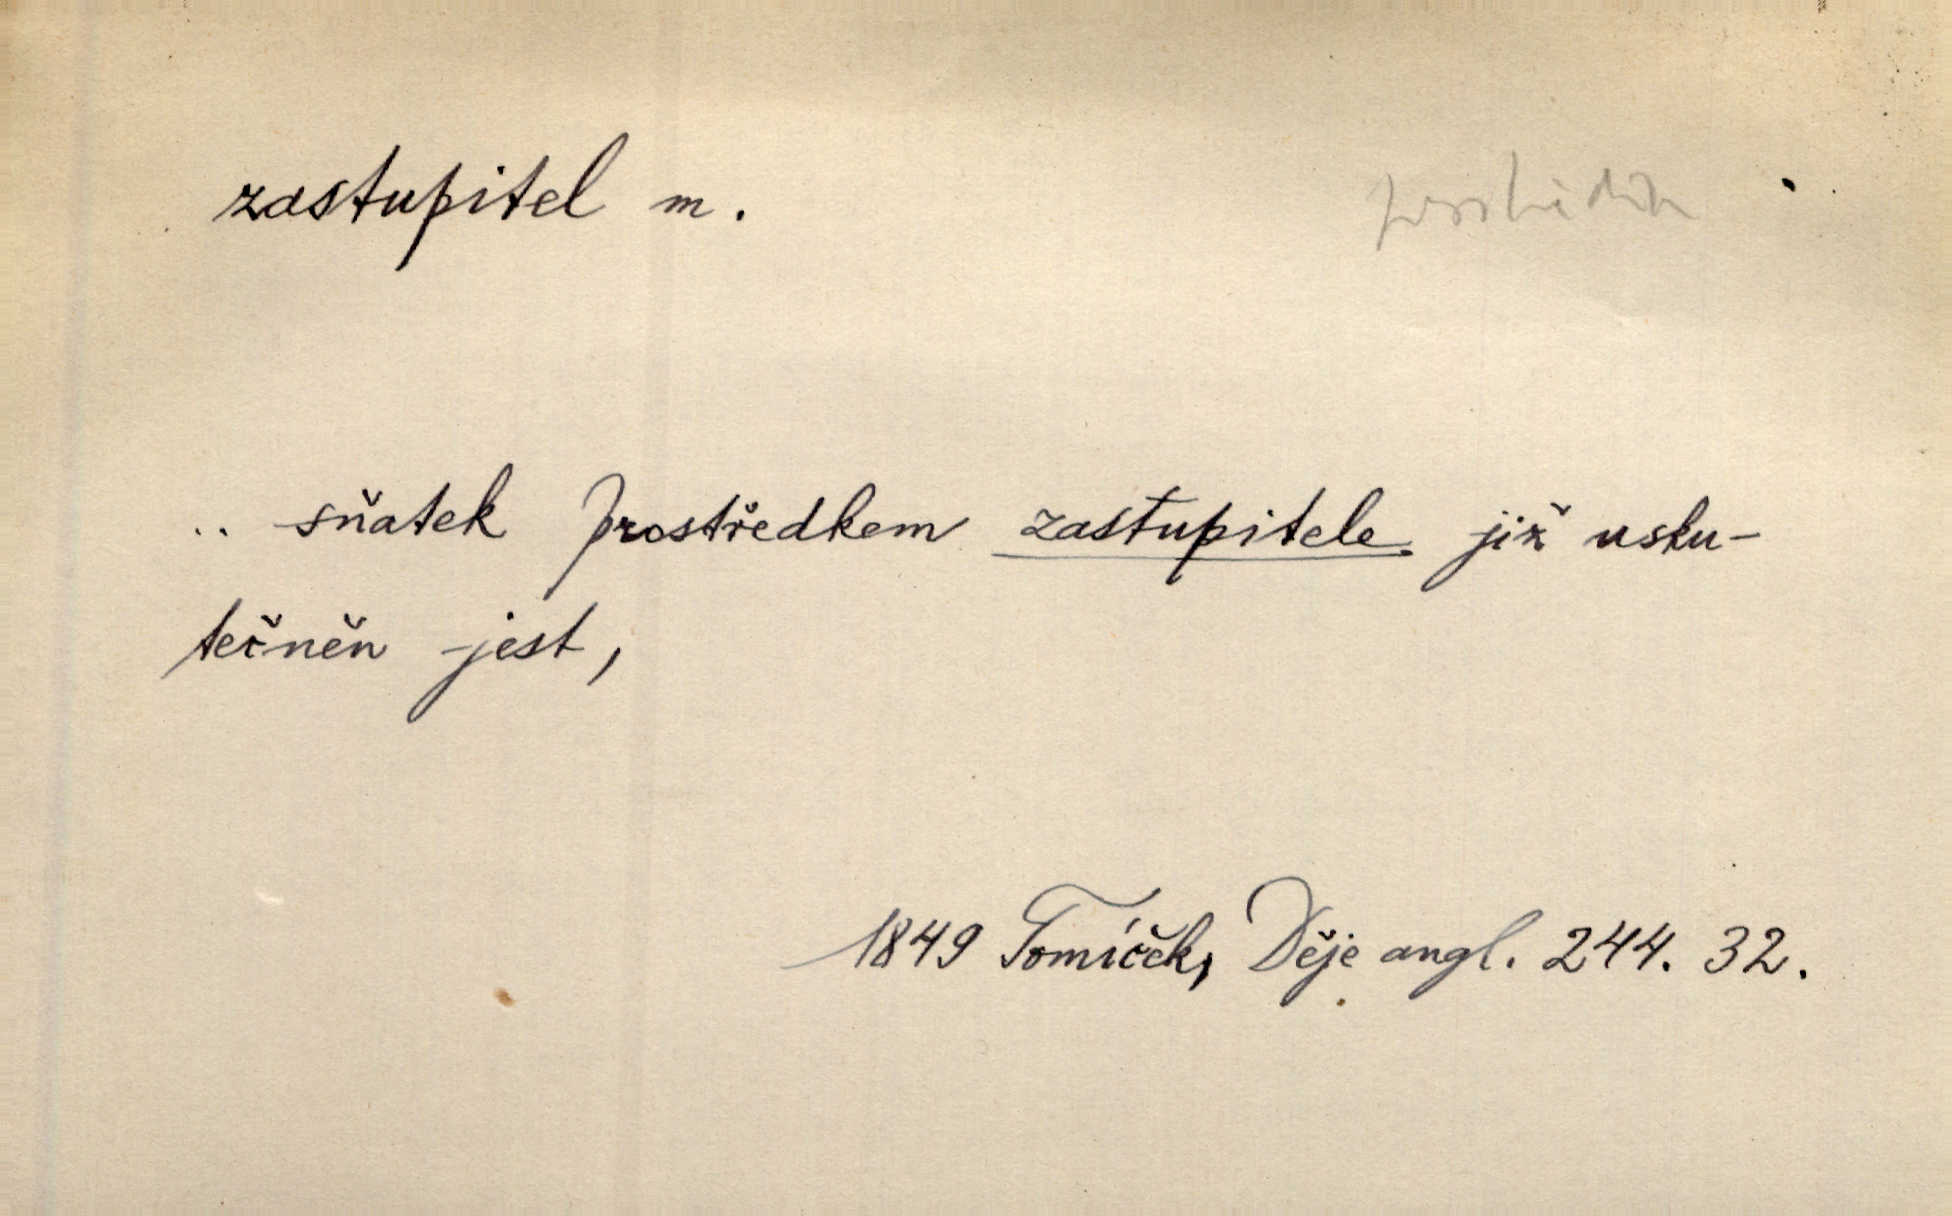 zastupitel m.
.. sňatek prostředkem zastupitele již usku-
tečněn jest,
1849 Tomíček, Děje angl. 244. 32.